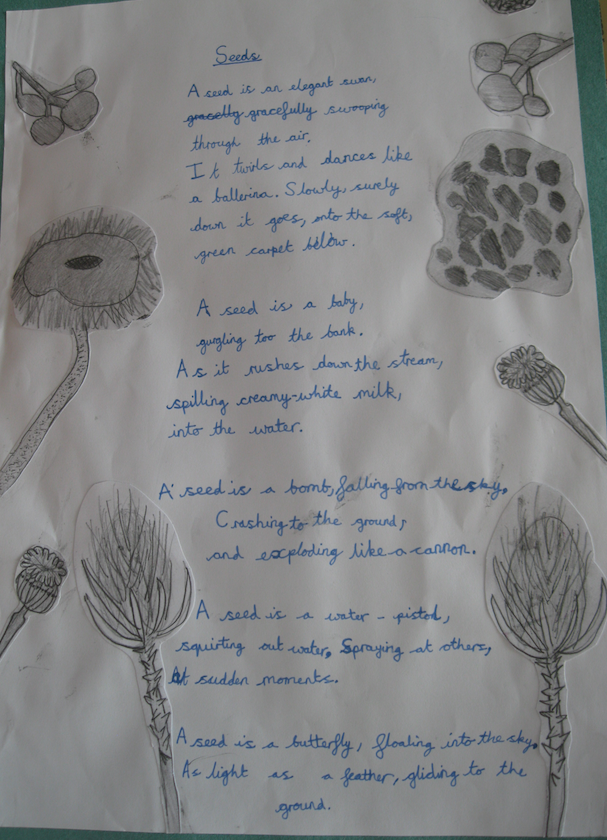 Seeds
A seed is an elegant swan,
gracefully swooping
through the air.
It twirls and dances like
a ballerina. Slowly, surely
down it goes, onto the soft,
green carpet below.
A seed is a baby,
gurgling too the bank.
As it rushes down the stream,
spilling creamy-white milk,
into the water.
A seed is a bomb, falling from the sky,
Crashing to the ground,
and exploding like a cannon.
A seed is a water-pistol,
squirting out water, Spraying at others,
At sudden moments.
A seed is a butterfly, floating into the sky,
As light as a feather, gliding to the
ground.